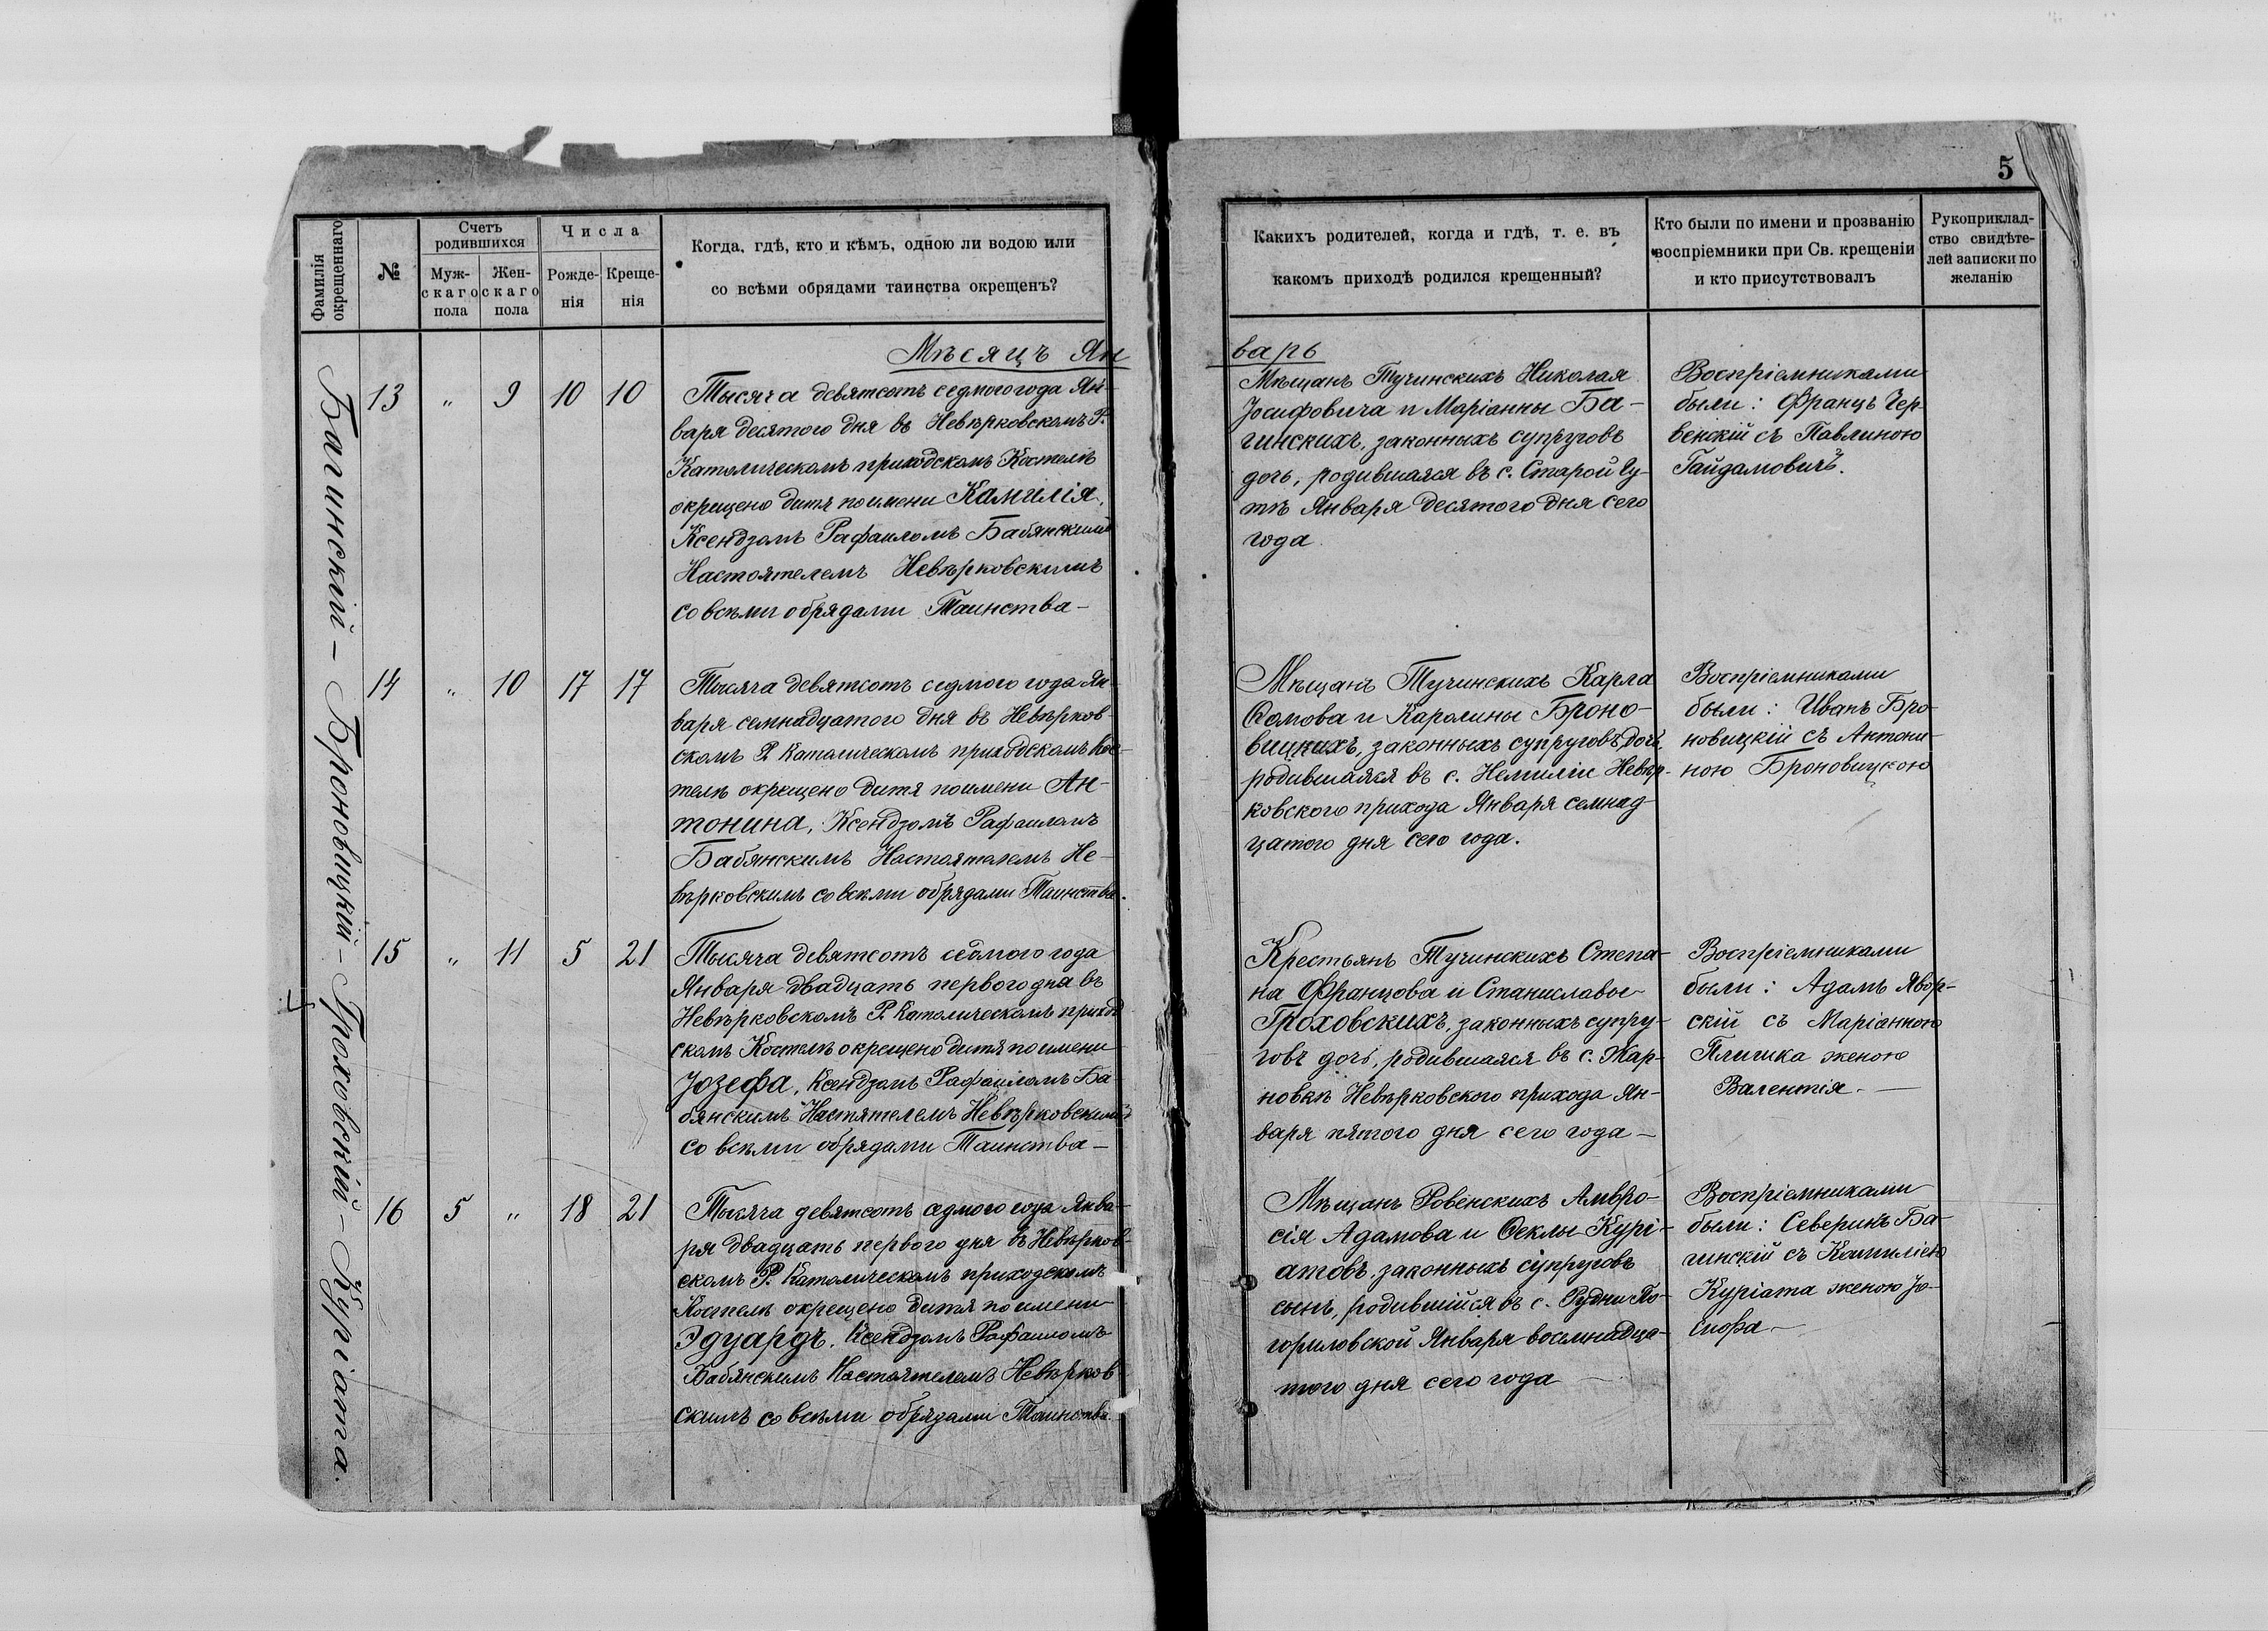 5
Фамилія
окрещеннаго
№
Счетъ
родившихся
Муж-
скаго
пола
Жен-
скаго
пола
Числа
Рожде-
нія
Креще-
нія
Когда, гдѣ, кто и кѣмъ, одною ли водою или
со всѣми обрядами таинства окрещенъ?
Какихъ родителей, когда и гдѣ, т. е. въ
какомъ приходѣ родился крещенный?
Кто были по имени и прозванію
воспріемники при Св. крещеніи
и кто присутствовалъ
Рукоприклад-
ство свидѣте-
лей записки по
желанію
Багинскій – Броновицкій – Гроховскій – Куріата.
Мѣсяцъ Ян
варь
13 " 9 10 10
Тысяча девятсотъ седмого года Ян-
варя десятого дня въ Невѣрковскомъ Р.
Католическомъ приходскомъ Костелѣ
окрещено дитя по имени Камилія,
Ксендзомъ Рафаиломъ Бабянскимъ
Настоятелемъ Невѣрковскимъ
со всѣми обрядами Таинства –
Мѣщанъ Тучинскихъ Николая
Іосифовича и Маріанны Ба-
гинскихъ, законныхъ супруговъ
дочь, родившаяся въ с. Старой Гу-
тѣ Января десятого дня сего
года.
Воспріемниками
были: Францъ Чер-
венскій съ Павлиною
Гайдамовичъ.
14 " 10 17 17
Тысяча девятсотъ седмого года Ян-
варя семнадцатого дня въ Невѣрков-
скомъ Р. Католическомъ приходскомъ Кос-
телѣ окрещено дитя по имени Ан-
тонина, Ксендзомъ Рафаиломъ
Бабянскимъ Настоятелемъ Не-
вѣрковскимъ со всѣми обрядами Таинства.
Мѣщанъ Тучинскихъ Карла
Ѳомова и Каролины Броно-
вицкихъ, законныхъ супруговъ, дочь,
родившаяся въ с. Немиліи Невѣр-
ковского прихода Января семнад-
цатого дня сего года.
Воспріемниками
были: Иванъ Бро-
новицкій съ Антони-
ною Броновицкою
15 " 11 5 21
Тысяча девятсотъ седмого года
Января двадцать первого дня въ
Невѣрковскомъ Р. Католическомъ приход
скомъ Костелѣ окрещено дитя по имени
Іозефа, Ксендзомъ Рафаиломъ Ба
бянскимъ Настятелемъ Невѣрковскимъ
со всѣми обрядами Таинства –
Крестьянъ Тучинскихъ Степа-
на Францова и Станиславы
Гроховскихъ, законныхъ супру-
говъ дочь, родившаяся въ с. Жар-
новкѣ Невѣрковского прихода Ян-
варя пятого дня сего года –
Воспріемниками
были: Адамъ Явор-
скій съ Маріанною
Плишка женою
Валентія. –
16 5 " 18 21
Тысяча девятсотъ седмого года Янва-
ря двадцать первого дня въ Невѣрков-
скомъ Р. Католическомъ приходскомъ
Костелѣ окрещено дитя по имени
Эдуардъ. Ксендзомъ Рафаиломъ
Бабянскимъ Настоятелемъ Невѣрков
скимъ со всѣми обрядами Таинства
Мѣщанъ Ровенскихъ Амвро-
сія Адамова и Ѳеклы Курі-
атовъ, законныхъ супруговъ
сынъ, родившійся въ с. Рудни По-
гориловской Января восемнадца-
того дня сего года –
Воспріемниками
были: Северинъ Ба-
гинскій съ Камиліею
Куріата женою Іо-
сифа –